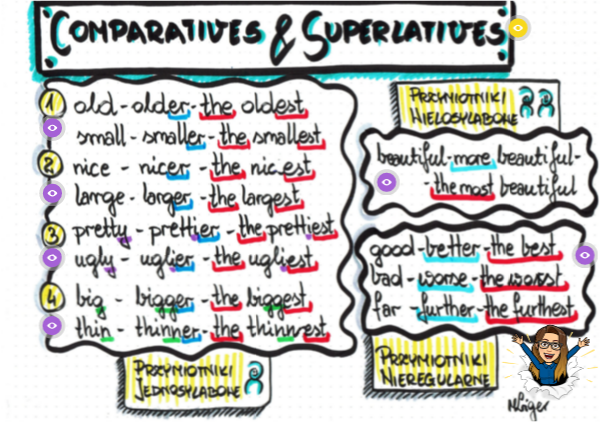 COMPARATIVES & SUPERLATIVES
1 old - older - the oldest
small - smaller - the smallest
2 nice - nicer - the nicest
large - larger - the largest
3 pretty - prettier - the prettiest
ugly - uglier - the ugliest
4 big - bigger - the biggest
thin - thinner - the thinnest
PRZYMIOTNIKI
JEDNOSYLABOWE
PRZYMIOTNIKI
WIELOSYLABOWE
beautiful - more beautiful -
- the most beautiful
good - better - the best
bad - worse - the worst
far - further - the furthest
PRZYMIOTNIKI
NIEREGULARNE